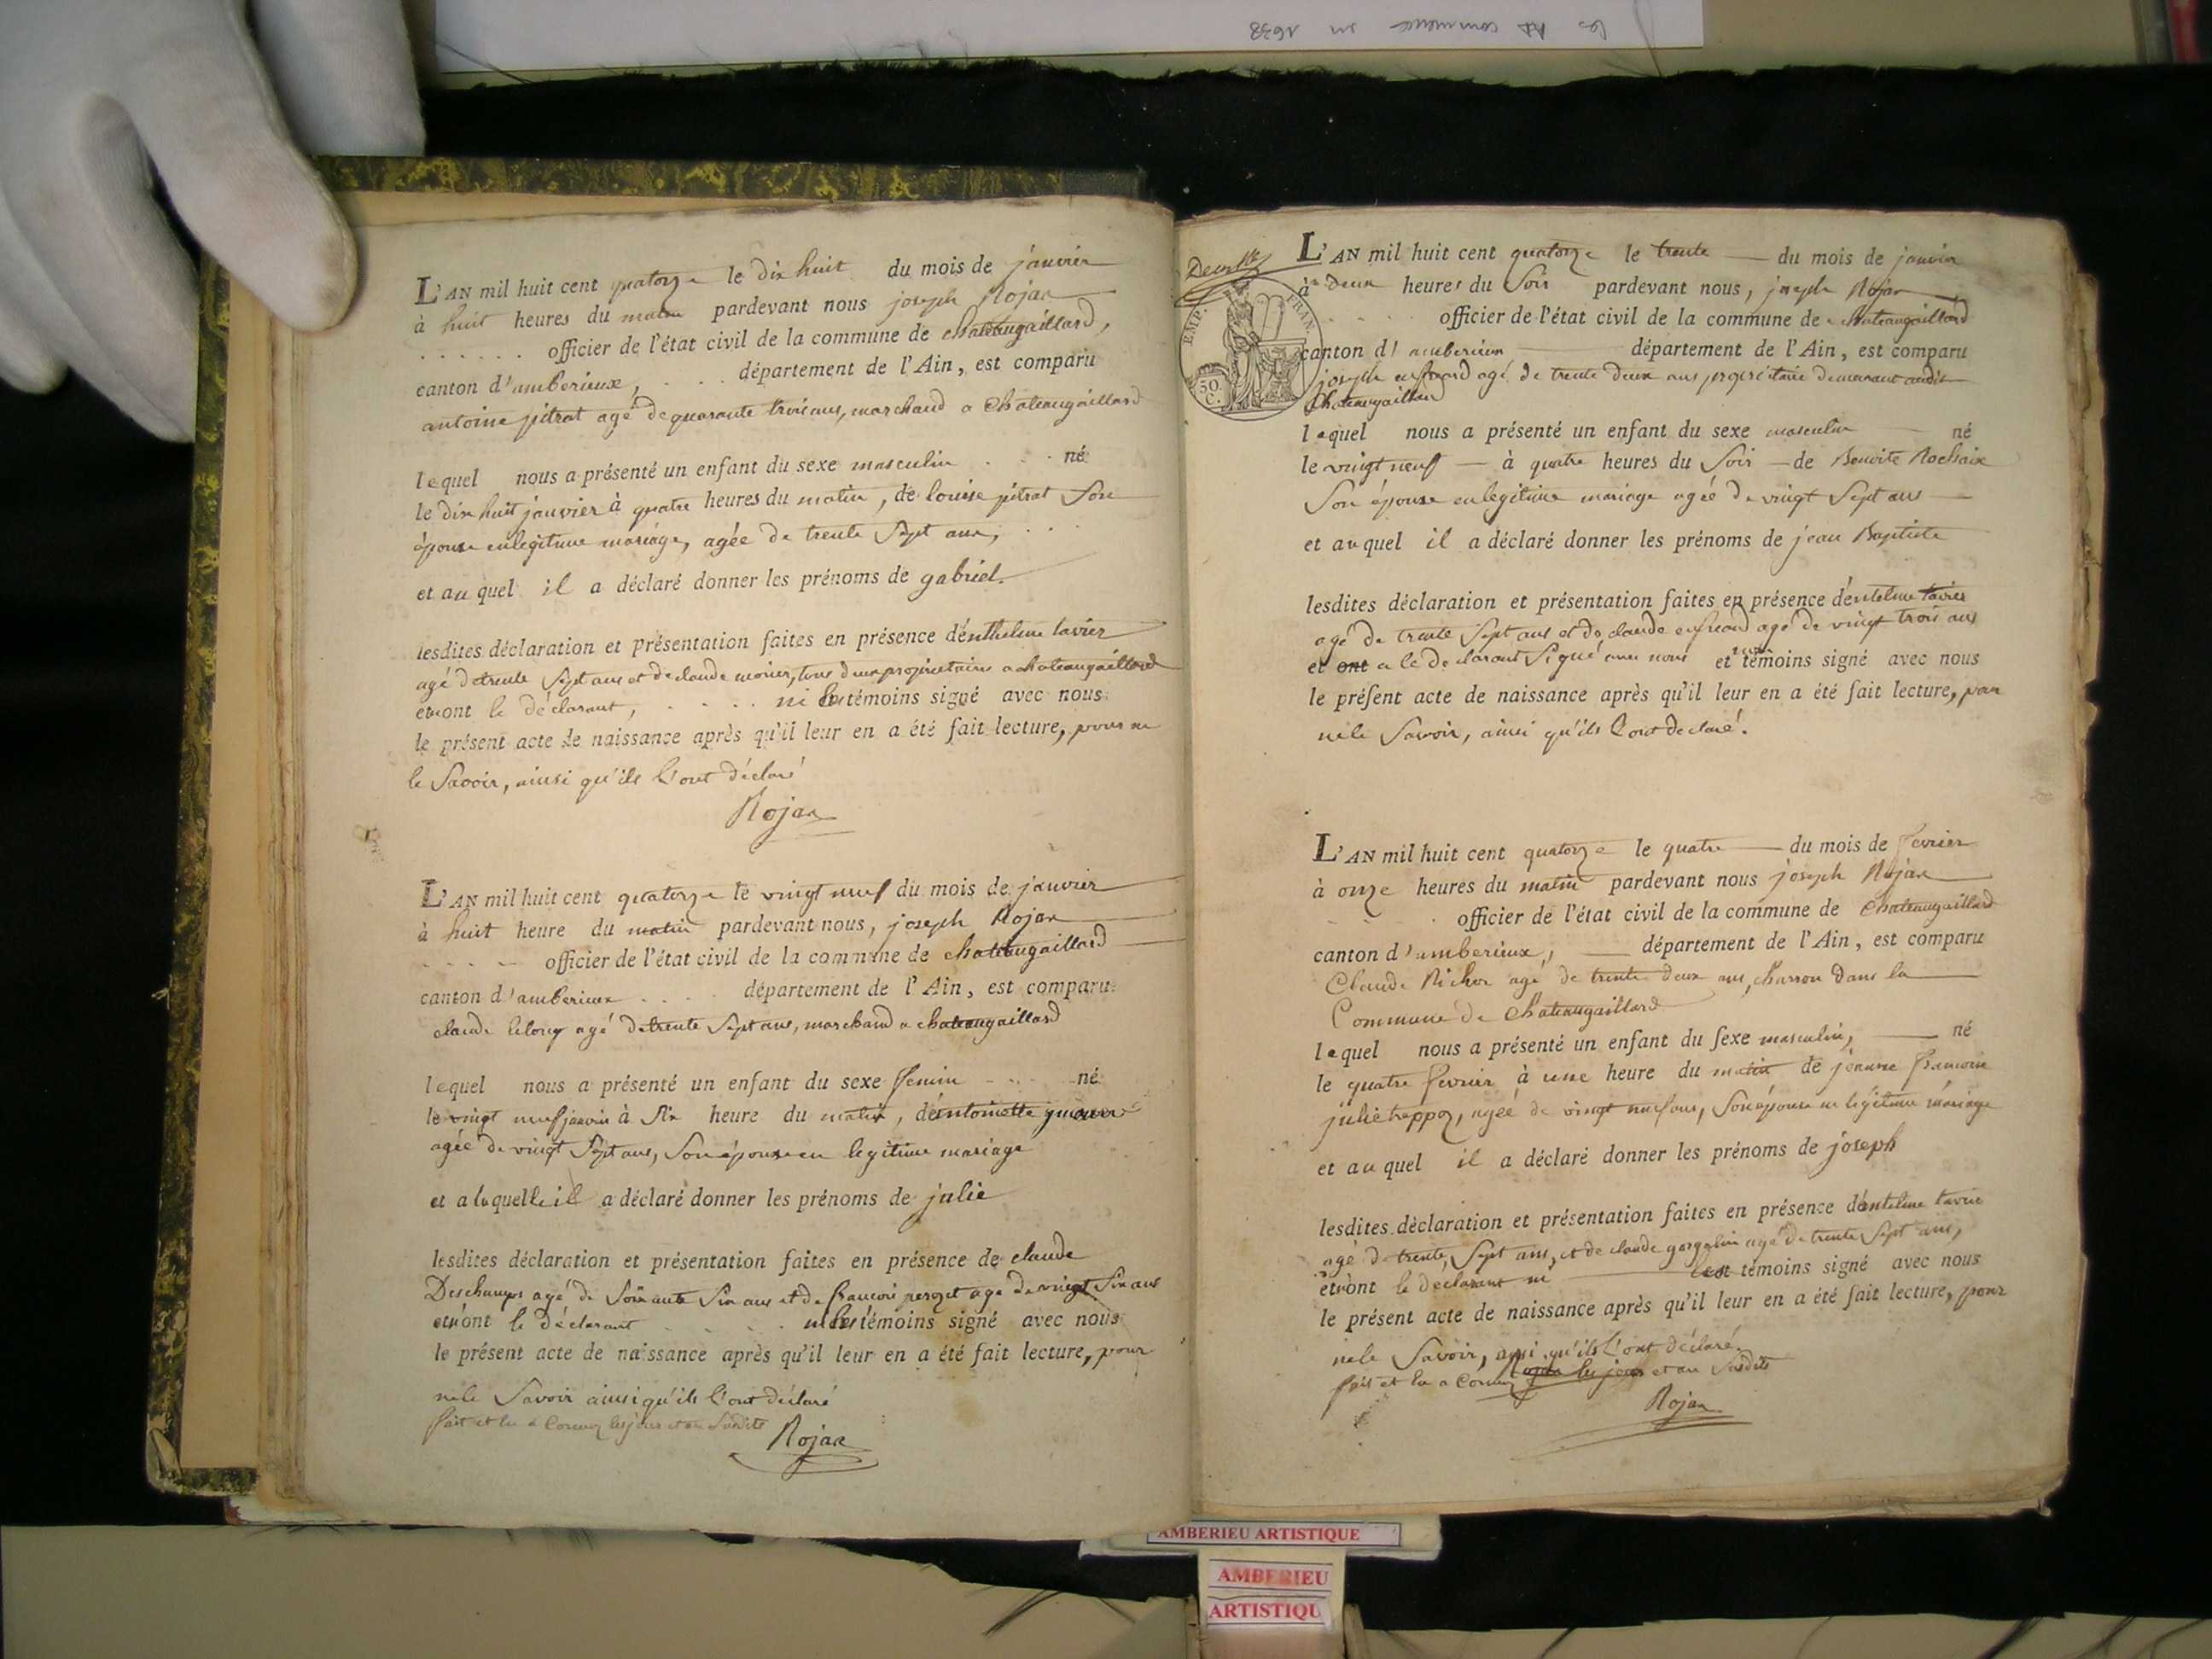 les AD commence en 1638
L'AN mil huit cent quatorze le dix huit du mois de janvier
à huit heures du matin pardevant nous joseph Rojar
officier de l'état civil de la commune de chateaugaillard,
canton d'amberieux, département de l'Ain, est comparu
antoine pitrat agé de quarante trois ans, marchand a Chateaugaillard
lequel nous a présenté un enfant du sexe masculin né
le dix huit janvier à quatre heures du matin, de louise pitrat Son
épouse en legitime mariage, agée de trente Sept ans,
et au quel il a déclaré donner les prénoms de gabriel.
lesdites déclaration et présentation faites en présence d'enthelme tavier
agé de trente Sept ans et de claude morier, tous deux proprietaires a chateaugaillard
et n'ont le déclarant, ni les témoins signé avec nous
le présent acte de naissance après qu'il leur en a été fait lecture, pour ne
le Savoir, ainsi qu'ils l'ont déclaré
Rojar
L'AN mil huit cent quatorze le vingt neuf du mois de janvier
à huit heure du matin pardevant nous, joseph Rojar
officier de l'état civil de la commune de chateaugaillard
canton d'amberieux département de l'Ain, est comparu
claude lelong agé de trente Sept ans, marchand a chateaugaillard
lequel nous a présenté un enfant du sexe femin né
le vingt neuf janvier à Six heure du matin, d'antoinette
agée de vingt Sept ans, Son épouse en legitime mariage
et a laquelle il a déclaré donner les prénoms de julie
lesdites déclaration et présentation faites en présence de claude
Deschamps agé de Soixante Six ans et de francois perozet agé de vingt Six ans
et n'ont le déclarant ni les témoins signé avec nous
le présent acte de naissance après qu'il leur en a été fait lecture, pour
ne le Savoir ainsi qu'ils l'ont déclaré
fait et lu a les jour et an Susdits
Rojar
EMP. FRAN.
50 C.
L'AN mil huit cent quatorze le trente du mois de janvier
à deux heures du Soir pardevant nous, joseph Rojar
officier de l'état civil de la commune de chateaugaillard
canton d'amberieux département de l'Ain, est comparu
joseph agé de trente deux ans proprietaire demeurant audit
Chateaugaillard
lequel nous a présenté un enfant du sexe masculin né
le vingt neuf à quatre heures du Soir de Benoite Rochaix
Son épouse en legitime mariage agée de vingt Sept ans
et au quel il a déclaré donner les prénoms de jean Baptiste
lesdites déclaration et présentation faites en présence d'entelme tavier
agé de trente Sept ans et de claude agé de vingt trois ans
et ont a le declarant Signé avec nous et témoins signé avec nous
le présent acte de naissance après qu'il leur en a été fait lecture, pour
ne le Savoir, ainsi qu'ils l'ont declaré.
L'AN mil huit cent quatorze le quatre du mois de fevrier
à onze heures du matin pardevant nous joseph Rojar
officier de l'état civil de la commune de Chateaugaillard
canton d'amberieux, département de l'Ain, est comparu
Claude agé de trente deux ans, charron dans la
Commune de Chateaugaillard
lequel nous a présenté un enfant du sexe masculin, né
le quatre fevrier à une heure du matin de jeanne francoise
julie treppoz, agée de vingt neuf ans, Son épouse en légitime mariage
et au quel il a déclaré donner les prénoms de joseph
lesdites déclaration et présentation faites en présence d'antelme tavier
agé de trente Sept ans, et de claude agé de trente Sept ans,
et n'ont le declarant ni les témoins signé avec nous
le présent acte de naissance après qu'il leur en a été fait lecture, pour
ne le Savoir, ainsi qu'ils l'ont déclaré.
fait et lu a les jour et an Susdits
Rojar
AMBERIEU ARTISTIQUE
AMBERIEU
ARTISTIQU